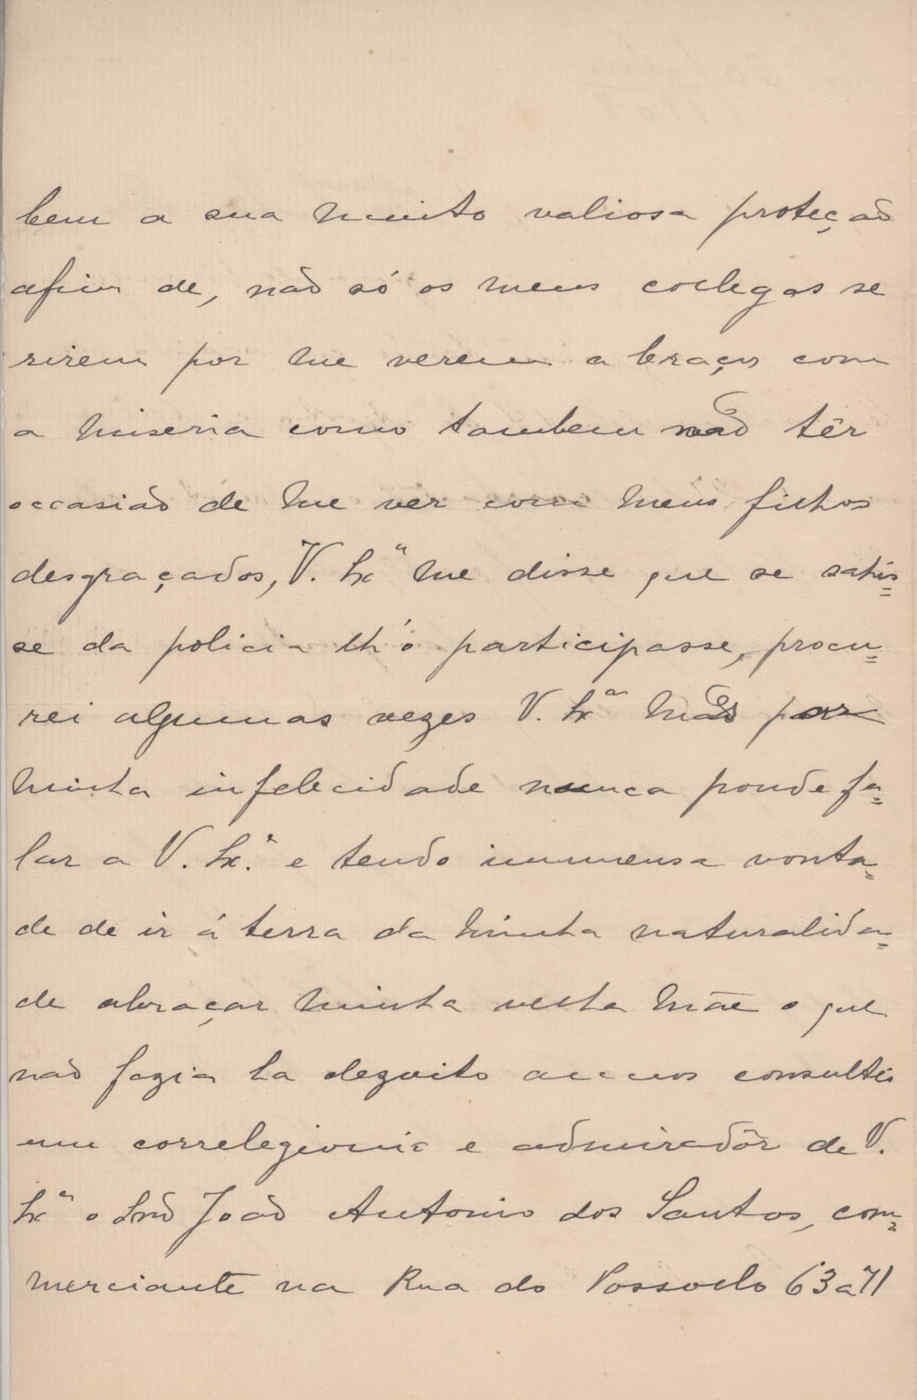 bem a sua muito valiosa proteção
afim de, não só os meus collegas se
rirem por me verem a braços com
a miseria como tambem não têr
occasião de me ver com meus filhos
desgraçados, V. Exª me disse que se sahis=
se da policia lh'o participasse, procu=
rei algumas vezes V. Exª mas por
minha infelecidade nunca poude fa=
lar a V. Ex.ª e tendo immensa vonta=
de de ir á terra da minha naturalida=
de abraçar minha velha Mãe o que
não fazia ha dezoito annos consultei
um correlegionio e admiradôr de V.
Exª o Snr João Antonio dos Santos, com=
merciante na Rua do Possollo 63 a 71